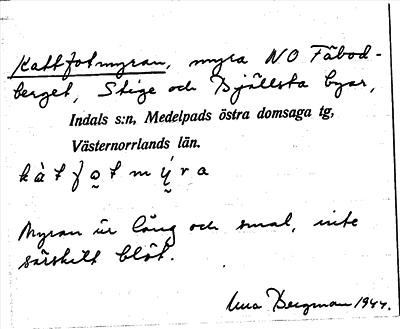 Kattfotmyran, myra NO Fäbod-
berget, Stige och Bjällsta byar,
Indals s:n, Medelpads östra domsaga tg,
Västernorrlands län.
kàtfo̯tmýra
Myran är lång och smal, inte
särskilt blöt.
Bergman 1944.